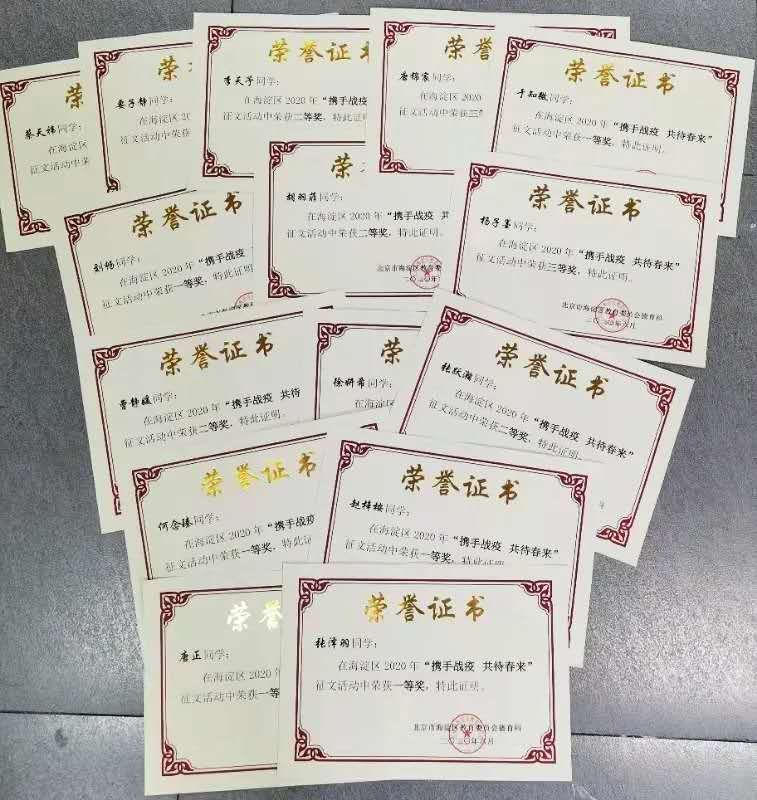 荣
蔡天禕同学：
在海淀
征文活动中荣
荣
娄子静同学：
在海淀区 20
征文活动中荣获
荣誉证书
李天予同学：
在海淀区 2020 年“携手战疫
征文活动中荣获二等奖，特此证明
荣誉证
唐锦宸同学：
在海淀区 2020
征文活动中荣获三等奖
荣誉证书
于知微同学：
在海淀区 2020 年“携手战疫 共待春来”
征文活动中荣获一等奖，特此证明。
荣誉证书
刘畅同学：
在海淀区 2020 年“携手战疫
征文活动中荣获一等奖，特此证明
荣
胡羽菲同学：
在海淀区 2020 年“携手战疫 共
征文活动中荣获二等奖，特此证明。
北京市海淀区教育委
二〇二〇年
荣誉证书
杨子墨同学：
在海淀区 2020 年“携手战疫 共待春来”
征文活动中荣获三等奖，特此证明。
北京市海淀区教育委员会德育科
二〇二〇年六月
荣誉证书
曹静媛同学：
在海淀区 2020 年“携手战疫 共待
征文活动中荣获二等奖，特此证明。
徐妍希同学：
在海淀区
征文活动中荣
荣誉证书
张跃瀚同学：
在海淀区 2020 年“携手战疫 共待春来”
征文活动中荣获二等奖，特此证明。
荣誉证书
何念臻同学：
在海淀区 2020 年“携手战疫
征文活动中荣获一等奖，特此证
荣誉证书
赵梓棱同学：
在海淀区 2020 年“携手战疫 共待春来”
征文活动中荣获一等奖，特此证明。
荣誉
唐正同学：
在海淀区 2020
征文活动中荣获一等奖
荣誉证书
张泽羽同学：
在海淀区 2020 年“携手战疫 共待春来”
征文活动中荣获一等奖，特此证明。
北京市海淀区教育委员会德育科
二〇二〇年六月